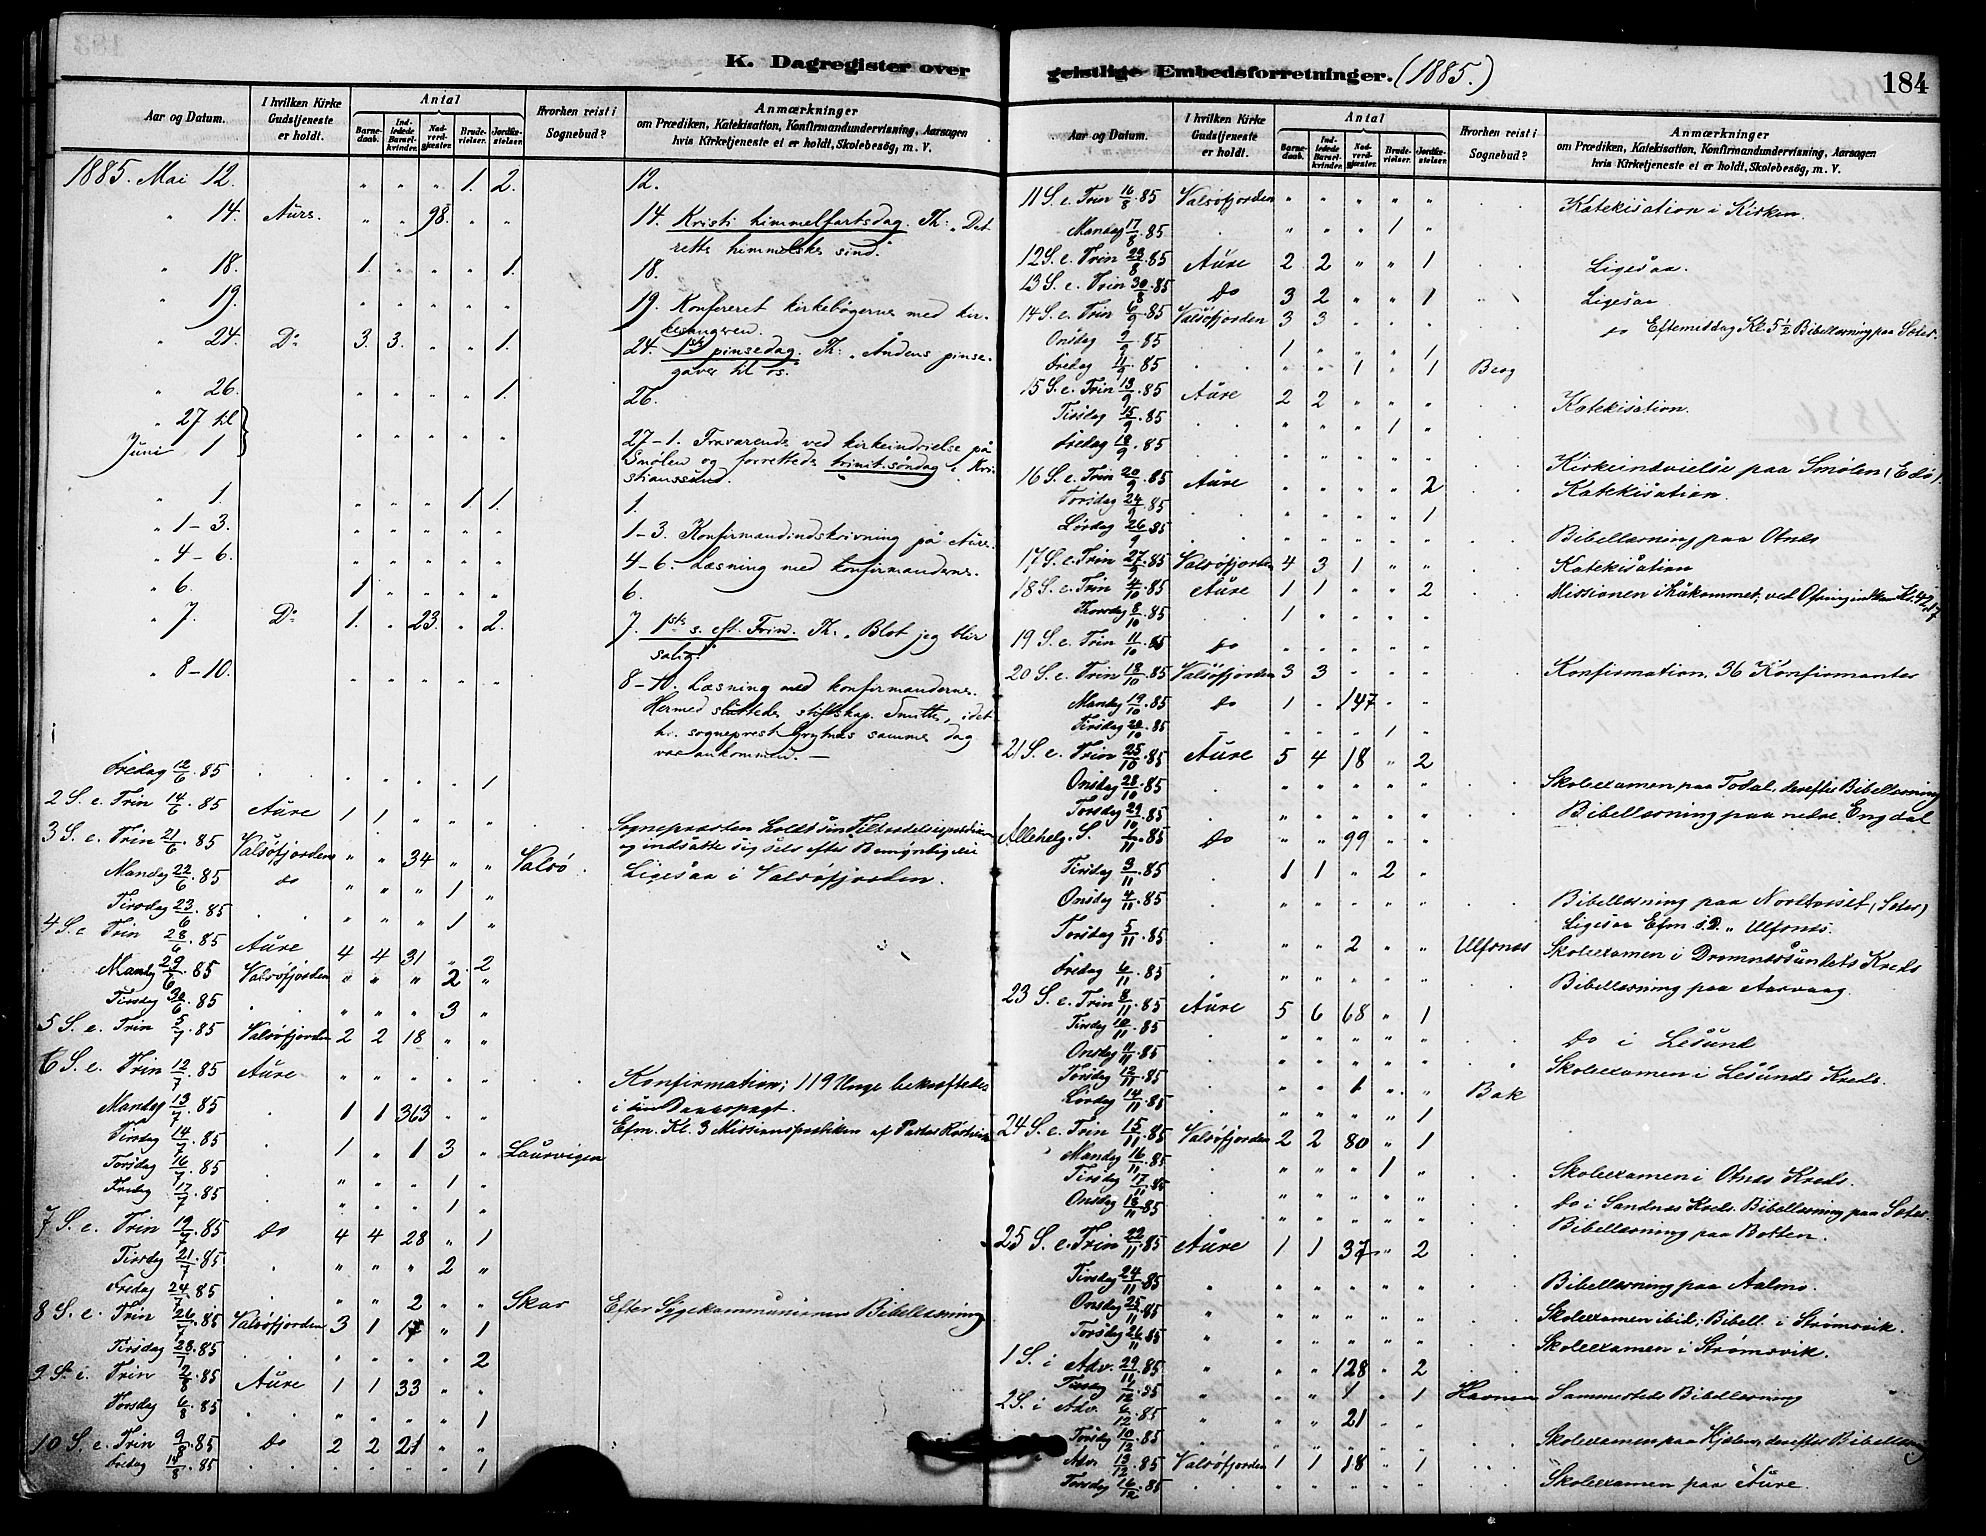 K. Dagregister over
Aar og Datum.
I hvilken Kirke Gudstjeneste er holdt.
Antal
Barnedaab.
Indledede Barselkvinder.
Nadverdgjæster.
Brudevielser.
Jordfæstelser.
Hvorhen reist i Sognebud?
Anmærkninger
om Prædiken, Katekisation, Konfirmandundervisning, Aarsagen
hvis Kirketjeneste ei er holdt, Skolebesög, m. V.
1885. Mai 12. " " " 1. 2. 12.
" 14. Aure. " " 98. " " 14. Kristi himmelfartsdag. Th: "Det
rette himmelske sind."
" 18. 1. " " " 1. 18.
" 19. " " " " " 19. Konfereret kirkebøgerne med kir-
kesangeren.
" 24. Do 3. 3. " " 1. 24. 1ste pinsedag. Th: "Andens pinse-
gaver til os."
" 26. " " " " 1. 26.
" 27 til
Juni 1 " " " " " 27-1. Fraværende ved kirkeindvielse på
Smølen og forrettede trinit. søndag i Kri-
stianssund.
" 1. " " " 1 1. 1.
" 1-3. " " " " " 1-3. Konfirmandindskrivning på Aure.
" 4-6. " " " " " 4-6. Læsning med konfirmanderne.
" 6. 1 " " " " 6.
" 7. Do 1. " 23. " 2. 7. 1ste s. eft. Trin. Th: "Blot jeg blir
salig."
" 8-10. " " " " " 8-10. Læsning med konfirmanderne.
Hermed sluttede stiftskap. Smitt, idet
hr. sogneprest Grytnes samme dag
var ankommen. —
Fredag 12/6.85 . " " " " 1
2 S. e. Trin 14/6.85 Aure 1 1 " " " Sognepræsten holdt sin Tiltrædelsesprædiken
og indsatte sig selv efter Bemyndigelse
3 S. e. Trin 21/6.85 Valsøfjorden " " 34 " " Valsø. Ligesaa i Valsøfjorden.
Mandag 22/6.85 do " " " 1 "
Tirsdag 23/6.85 . " " " 1 "
4 S. e. Trin 28/6.85 Aure 4 4 31 " 2
Mandg 29/6.85 Valsøfjorden " " " 2 "
Tirsdag 30/6.85 . " " " 3 "
5 S. e. Trin 5/7.85 Valsøfjorden 2 2 18 " "
6 S. e. Trin 12/7.85 Aure " " " " " Konfirmation; 119 Unge bekræftedes
i sin Daabspagt.
Mandag 13/7.85 . 1 1 363 " " Efm. Kl. 3 Missionsprædiken af Pastor
Tirsdag 14/7.85 . 1 " 1 3 " Laurvigen
Torsdag 16/7.85 . " " " 1 "
Fredag 17/7.85 . " " " 1 "
7 S. e. Trin 19/7.85 do 4 4 28 " 1
Tirsdag 21/7.85 . " " " 2 "
Fredag 24/7.85 " " 2 " " Skar Efter Sygekommunionen Bibellæsning
8 S. e. Trin 26/7.85 Valsøfjorden 3 1 17 " 1
Tirsdag 28/7.85 . " " " " 2
9 S. e. Trin 2/8.85 Aure 1 1 33 " "
Torsdag 6/8.85 . " " " " 1
10 S. e. Trin 9/8.85 do 2 2 21 " "
Fredag 14/8.85 . . . . . 1
geistlige Embedsforretninger. (1885.) 184
Aar og Datum.
I hvilken Kirke Gudstjeneste er holdt.
Antal
Barnedaab.
Indledede Barselkvinder.
Nadverdgjæster.
Brudevielser.
Jordfæstelser.
Hvorhen reist i Sognebud?
Anmærkninger
om Prædiken, Katekisation, Konfirmandundervisning, Aarsagen
hvis Kirketjeneste ei er holdt, Skolebesög, m. V.
11 S. e. Trin 16/8.85 Valsøfjorden " " " " " Katekisation i Kirken.
Mandag 17/8.85 . " " " 1 "
12 S. e. Trin 23/8.85 Aure 2 2 " " 1 Ligesaa.
13 S. e. Trin 30/8.85 do 3 2 " " 1 Ligesaa
14 S. e. Trin 6/9.85 Valsøfjorden 3 3 " " " do Eftermiddag Kl. 5 1/2 Bibellæsning paa Sæter.
Onsdag 9/9.85 . 1 " " " 1
Fredag 11/9.85 . " " 1 " 1 Berg
15 S. e. Trin 13/9.85 Aure 2 2 " " " Katekisation.
Tirsdag 15/9.85 . " " " 1 "
Fredag 18/9.85 . " " " " " Kirkeindvielse paa Smølen (Edø).
16 S. e. Trin 20/9.85 Aure " " " " 2 Katekisation.
Torsdag 24/9.85 . " " " " 1
Lørdag 26/9.85 . " " " " " Bibellæsning paa Otnes
17 S. e. Trin 27/9.85 Valsøfjorden 4 3 1 " " Katekisation
18 S. e. Trin 4/10.85 Aure 1 1 " " 2 Missionen ihukommet, ved
Thorsdag 8/10.85 1 " " " "
19 S. e. Trin 11/10.85 do " " " " "
20 S. e. Trin 18/10.85 Valsøfjorden 3 3 " " " Konfirmation, 36 Konfirmanter
Mandag 19/10.85 do 1 " 147 " "
Tirsdag 20/10.85 " " " 1 "
21 S. e. Trin 25/10.85 Aure 5 4 18 " 2
Onsdag 28/10.85 . " " " " " Skoleexamen paa Todal, derefter Bibellæsning
Torsdag 29/10.85 . " " " " " Bibellæsning paa nedre Engdal
Allehelg. S. 1/11.85 do " " 99 " "
Tirsdag 3/11.85 . 1 1 " 2 "
Onsdag 4/11.85 . " " " " " Bibellæsning paa
Ligesaa Efm s.D. " Ulfsnes.
Torsdag 5/11.85 . " " 2 " " Ulfsnes Skoleexamen i Dromnessundets Kreds
Fredag 6/11.85 . " " " " " Bibellæsning paa Aarvaag.
23 S. e. Trin 8/11.85 Aure 5 6 68 " 1
Tirsdag 10/11.85 . " " " " " do i Lesund
Onsdag 11/11.85 . " " " " " Skoleexamen i Lesunds Kreds.
Torsdag 12/11.85 . " " 1 " " Bak
Lørdag 14/11.85 . " " " " 1
24 S. e. Trin 15/11.85 Valsøfjorden 2 2 80 " 1
Mandag 16/11.85 . " " " 1 "
Tirsdag 17/11.85 . " " " " " Skoleexamen i Otnes Kreds.
Onsdag 18/11.85 . " " " " " do i Sandnes Kreds. Bibellæsning paa Sæter.
Bibellæsning paa Botten.
25 S. e. Trin 22/11.85 Aure 1 1 37 " 2
Tirsdag 24/11.85 " " " " " " Bibellæsning paa Aalmo.
Onsdag 25/11.85 " " " " " " Skoleexamen ibid; Bibell. i Strømsvik.
Torsdag 26/11.85 " " " " " " Skoleexamen i Strømsvik.
1 S. i Adv. 29/11.85 " " " 128 " 2
Tirsdag 1/12.85 " " " 1 " 1 Havnen Sammesteds Bibellæsning
2 S. i Adv. 6/12.85 " " " 21 " "
Torsdag 10/12.85 . . . . . . Skoleexamen paa Hjelen, derefter Bibellæsning
Adv. 13/12.85 Valsøfjorden 1 1 18 " 1
Torsdag 16/12.85 . . . . . . Skoleexamen paa Aure.